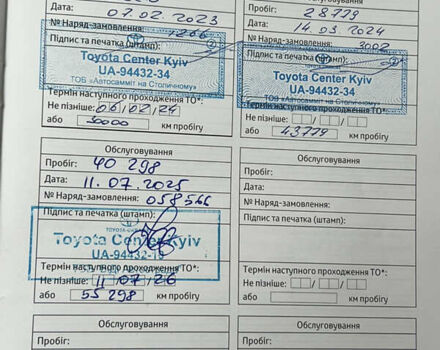 Дата: 07.02.2023
№ Наряд-замовлення: 1266
Підпис та печатка (штамп):
Toyota Center Kyiv
UA-94432-34
ТОВ «Автосамміт на Столичному»
Термін наступного проходження ТО*:
Не пізніше: 06/02/24
або 30000 км пробігу
Пробіг: 28779
Дата: 14.03.2024
№ Наряд-замовлення: 3002
Підпис та печатка (штамп):
Toyota Center Kyiv
UA-94432-34
ТОВ «Автосамміт на Столичному»
Термін наступного проходження ТО*:
Не пізніше: / /
або 43779 км пробігу
Обслуговування
Пробіг: 40 298
Дата: 11.07.2025
№ Наряд-замовлення: 058566
Підпис та печатка (штамп):
TOYOTA
Toyota Center Kyiv
UA-94432-19
Термін наступного проходження ТО*:
Не пізніше: 11/07/26
або 55 298 км пробігу
Обслуговування
Пробіг:
Дата:
№ Наряд-замовлення:
Підпис та печатка (штамп):
Термін наступного проходження ТО*:
Не пізніше: / /
або км пробігу
Обслуговування
Пробіг:
Обслуговування
Пробіг: